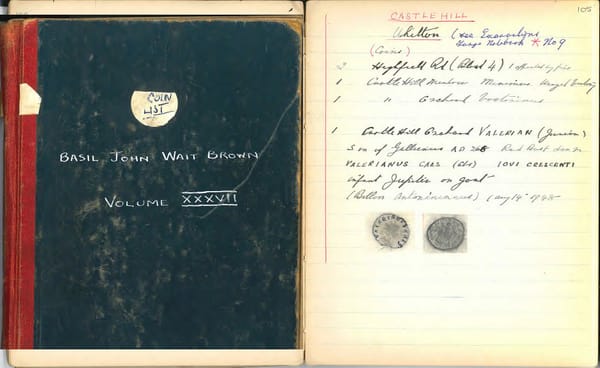 COIN
LIST
BASIL JOHN WAIT BROWN
VOLUME XXXVII
105
CASTLE HILL
Whitton (see Excavations
Large Notebook * No 9
(Coins)
2 Highfield Rd (Plot 4) 1
1 Castle Hill Meadow
1 " Orchard
1 Castle Hill Orchard VALERIAN (Junior)
Son of Gallienus AD 268 Rad Bust
VALERIANUS CAES (Obv) IOVI CRESCENTI
infant Jupiter on goat
(Billon Antoninianus) 1948